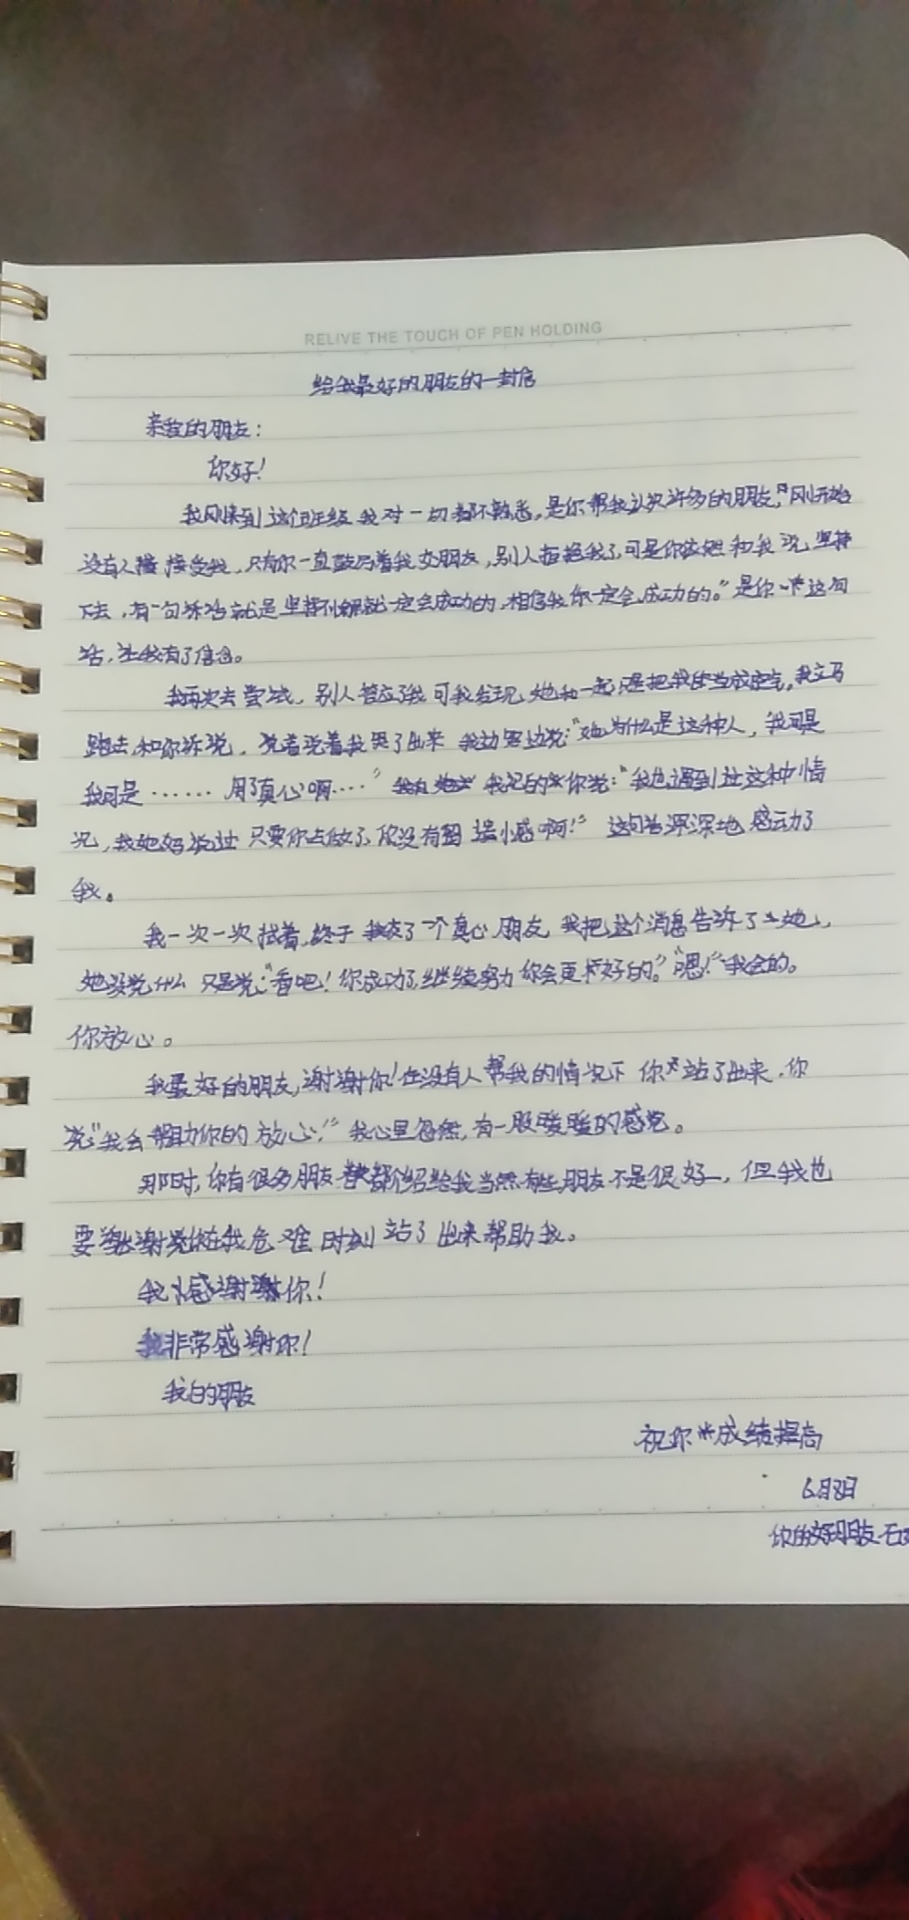 RELIVE THE TOUCH OF PEN HOLDING
给我最好的朋友的一封信
亲爱的朋友：
你好！
我刚来到这个班级，我对一切都不熟悉，是你帮我认识许多的朋友，刚开始
没有人接受我，只有你一直鼓励着我交朋友，别人拒绝我了，可是你依然和我说，坚持
下去，有一句话就是坚持不懈就一定会成功的，相信我你一定会成功的。”是你这句
话，让我有了信念。
我再次去尝试，别人答应了我可我发现，她和一起只是把我当成空气，我立马
跑去和你诉说，说着说着我哭了出来 我边哭边说：“她为什么是这种人，我可是
我可是……用了真心啊……” 我记的你说：“我也遇到过这种情
况，我妈妈说过 只要你去做了，你没有留遗憾啊！” 这句话深深地感动了
我。
我一次一次找着，终于我交了一个真心朋友 我把这个消息告诉了她，
她没说什么 只是说：“看吧！你成功了，继续努力你会更好的。”“恩！”我会的。
你放心。
我最好的朋友，谢谢你！在没有人帮我的情况下 你站了出来，你
说“我会帮助你的 放心！” 我心里忽然，有一股暖暖的感觉。
那时，你有很多朋友都介绍给我当然有些朋友不是很好，但我也
要谢谢你在我危难时刻站了出来帮助我。
我感谢你！
我非常感谢你！
我的朋友
祝你成绩提高
6月8日
你的好朋友